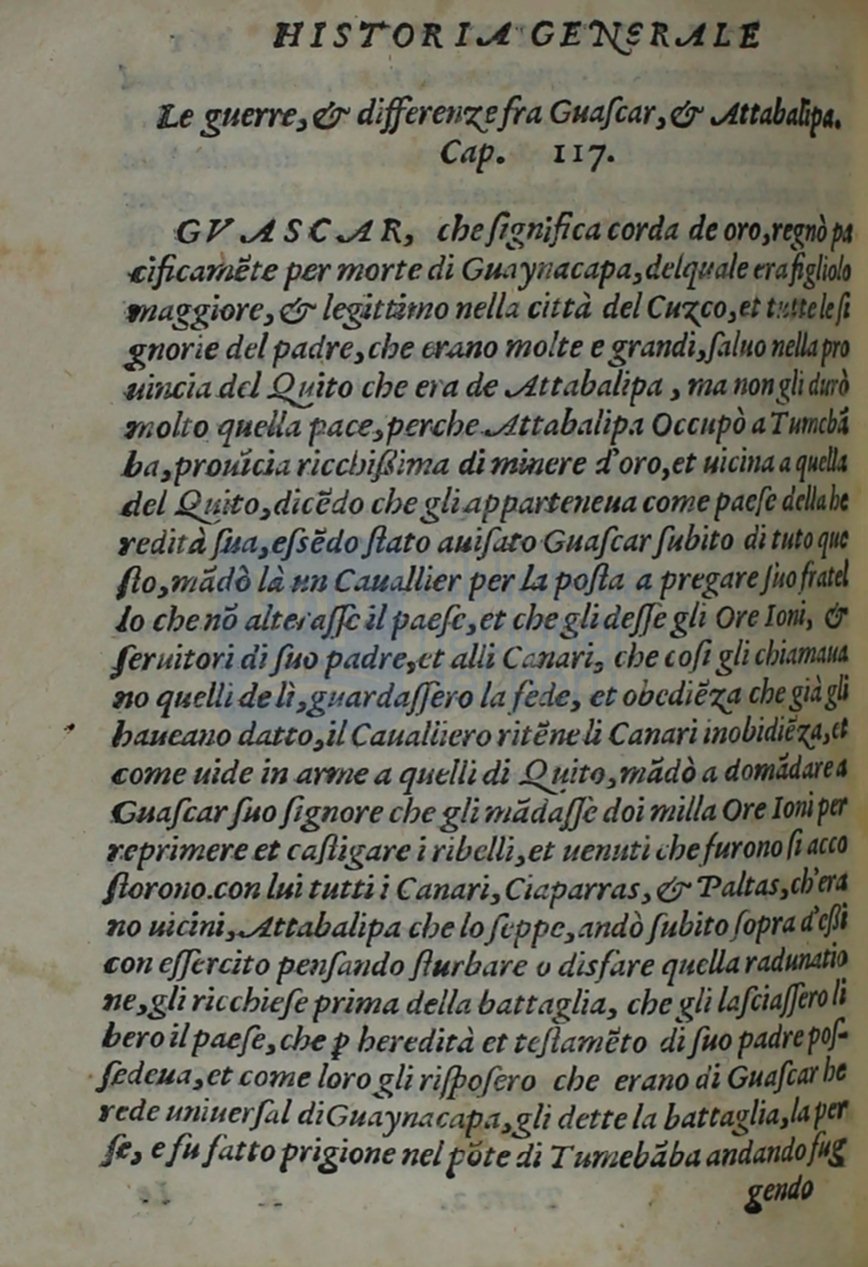 HISTORIA GENERALE
Le guerre, & differenze fra Guaſcar, & Attabalipa.
Cap. 117.
GVASCAR, che ſignifica corda de oro, regnò pa
cificamẽte per morte di Guaynacapa, delquale era figliolo
maggiore, & legittimo nella città del Cuzco, et tutte le ſi
gnorie del padre, che erano molte e grandi, ſaluo nella pro
uincia del Quito che era de Attabalipa, ma non gli durò
molto quella pace, perche Attabalipa Occupò a Tumebã
ba, prouĩcia ricchiſſima di minere d'oro, et uicina a quella
del Quito, dicẽdo che gli apparteneua come paeſe della he
redità ſua, eſsẽdo ſtato auiſato Guaſcar ſubito di tuto que
ſto, mãdò là un Cauallier per la poſta a pregare ſuo fratel
lo che nõ alteraſſe il paeſe, et che gli deſſe gli Ore Ioni, &
ſeruitori di ſuo padre, et alli Canari, che coſi gli chiamaua
no quelli de lì, guardaſſero la fede, et obediẽza che già gli
haueano datto, il Caualliero ritẽne li Canari inobidiẽza, et
come uide in arme a quelli di Quito, mãdò a domãdare a
Guaſcar ſuo ſignore che gli mãdaſſe doi milla Ore Ioni per
reprimere et caſtigare i ribelli, et uenuti che furono ſi acco
ſtorono.con lui tutti i Canari, Ciaparras, & Paltas, ch'era
no uicini, Attabalipa che lo ſeppe, andò ſubito ſopra d'eſſi
con eſſercito penſando ſturbare o disfare quella radunatio
ne, gli ricchieſe prima della battaglia, che gli laſciaſſero li
bero il paeſe, che ꝑ heredità et teſtamẽto di ſuo padre poſ-
ſedeua, et come loro gli riſpoſero che erano di Guaſcar he
rede uniuerſal di Guaynacapa, gli dette la battaglia, la per
ſe, e fu fatto prigione nel põte di Tumebãba andando fug
gendo